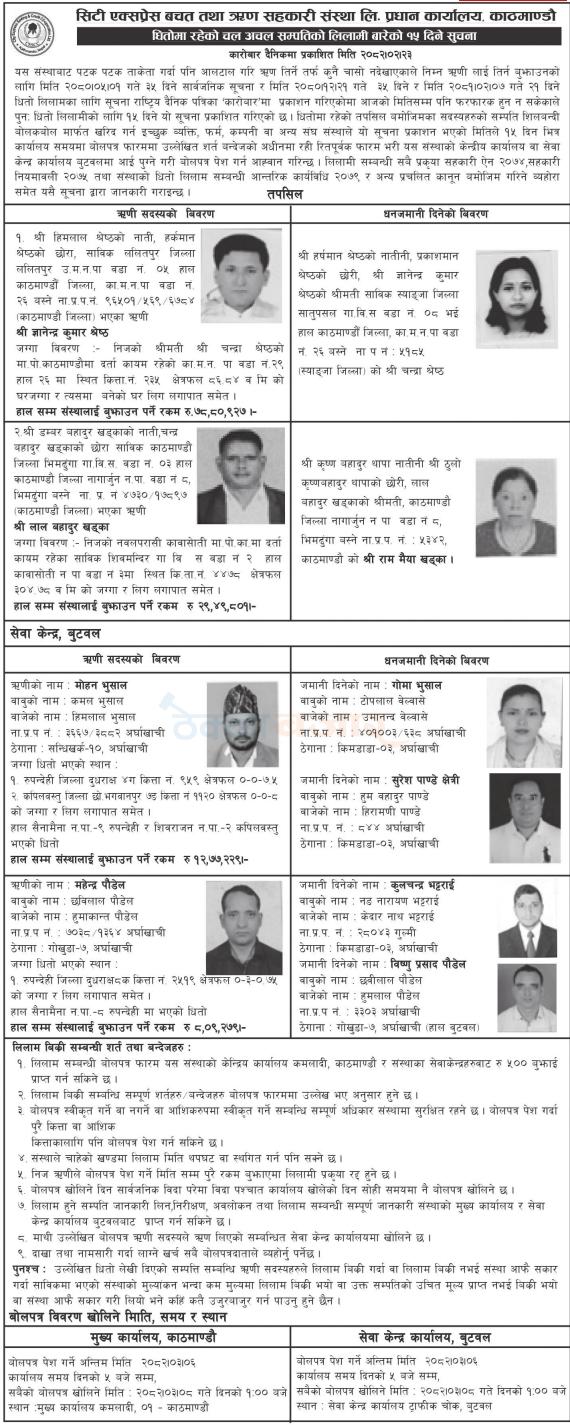 सिटी एक्सप्रेस बचत तथा ऋण सहकारी संस्था लि. प्रधान कार्यालय, काठमाण्डौ
धितोमा रहेको चल अचल सम्पतिको लिलामी बारेको १५ दिने सुचना
कारोबार दैनिकमा प्रकाशित मिति २०८२।०२।२३
यस संस्थाबाट पटक पटक ताकेता गर्दा पनि आलटाल गरि ऋण तिर्ने तर्फ कुनै चासो नदेखाएकोले निम्न ऋणी लाई तिर्न बुझाउनको
लागि मिति २०८०।०५।०१ गते ३५ दिने सार्वजनिक सूचना र मिति २०८०।१२।२१ गते ३५ दिने र मिति २०८१।०२।०७ गते २१ दिने
धितो लिलामका लागि सूचना राष्ट्रिय दैनिक पत्रिका 'कारोबार'मा प्रकाशन गरिएकोमा आजको मितिसम्म पनि फरफारक हुन न सकेकाले
पुन: धितो लिलामीको लागि १५ दिने यो सूचना प्रकाशित गरिएको छ । धितोमा रहेको तपसिल बमोजिमका सदस्यहरुको सम्पति शिलवन्दी
बोलकवोल मार्फत खरिद गर्न इच्छुक व्यक्ति, फर्म, कम्पनी वा अन्य संघ संस्थाले यो सूचना प्रकाशन भएको मितिले १५ दिन भित्र
कार्यालय समयमा बोलपत्र फाराममा उल्लेखित शर्त बन्देजको अधीनमा रही रितपूर्वक फारम भरी यस संस्थाको केन्द्रीय कार्यालय वा सेवा
केन्द्र कार्यालय बुटवलमा आई पुग्ने गरी बोलपत्र पेश गर्न आह्वान गरिन्छ । लिलामी सम्बन्धी सबै प्रकृया सहकारी ऐन २०७४,सहकारी
नियमावली २०७५ तथा संस्थाको धितो लिलाम सम्बन्धी आन्तरिक कार्यविधि २०७९ र अन्य प्रचलित कानून बमोजिम गरिने व्यहोरा
समेत यसै सूचना द्वारा जानकारी गराइन्छ ।
तपसिल
ऋणी सदस्यको बिवरण
१. श्री हिमलाल श्रेष्ठको नाती, हर्कमान
श्रेष्ठको छोरा, साविक ललितपुर जिल्ला
ललितपुर उ.म.न.पा वडा नं. ०५ हाल
काठमाण्डौं जिल्ला, का.म.न.पा वडा नं.
२६ बस्ने ना.प्र.प.नं. ९६५०१/५६९/६७८४
(काठमाण्डौं जिल्ला) भएका ऋणी
श्री ज्ञानेन्द्र कुमार श्रेष्ठ
जग्गा बिवरण :- निजको श्रीमती श्री चन्द्रा श्रेष्ठको
मा.पो.काठमाण्डौमा दर्ता कायम रहेको का.म.न. पा वडा नं.२९
हाल २६ मा स्थित कित्ता.नं. २३५ क्षेत्रफल ८६.८४ व मि को
घरजग्गा र त्यसमा बनेको घर लिग लगापात समेत ।
हाल सम्म संस्थालाई बुझाउन पर्ने रकम रु.७८,८०,९२७।-
धनजमानी दिनेको बिवरण
श्री हर्षमान श्रेष्ठको नातीनी, प्रकाशमान
श्रेष्ठको छोरी, श्री ज्ञानेन्द्र कुमार
श्रेष्ठको श्रीमती साविक स्याङ्जा जिल्ला
सातुपसल गा.वि.स वडा नं. ०८ भई
हाल काठमाण्डौं जिल्ला, का.म.न.पा वडा
नं. २६ बस्ने ना प नं : ५१८५
(स्याङ्जा जिल्ला) को श्री चन्द्रा श्रेष्ठ
२.श्री डम्बर बहादुर खड्काको नाती,चन्द्र
बहादुर खड्काको छोरा साविक काठमाण्डौ
जिल्ला भिमढुंगा गा.वि.स. वडा नं. ०३ हाल
काठमाण्डौ जिल्ला नागार्जुन न.पा. वडा नं ८,
भिमढुंगा बस्ने ना. प्र. नं ४७३०/१७८९७
(काठमाण्डौं जिल्ला) भएका ऋणी
श्री लाल बहादुर खड्का
जग्गा बिवरण :- निजको नवलपरासी कावासोती मा.पो.का.मा दर्ता
कायम रहेको साबिक शिवमन्दिर गा वि स वडा नं २ हाल
कावासोती न पा वडा नं ३मा स्थित कि.ता.नं. ४४७८ क्षेत्रफल
३०४.७८ व मि को जग्गा र लिग लगापात समेत ।
हाल सम्म संस्थालाई बुझाउन पर्ने रकम रु २९,४९,८०१।-
श्री कृष्ण बहादुर थापा नातीनी श्री ठुलो
कृष्णबहादुर थापाको छोरी, लाल
बहादुर खड्काको श्रीमती, काठमाण्डौ
जिल्ला नागार्जुन न पा वडा नं ८,
भिमढुंगा बस्ने ना.प्र.प.नं. : ५३४२,
काठमाण्डौ को श्री राम मैया खड्का ।
सेवा केन्द्र, बुटवल
ऋणी सदस्यको बिवरण
ऋणीको नाम : मोहन भुसाल
बाबुको नाम : कमल भुसाल
बाजेको नाम : हिमलाल भुसाल
ना.प्र.प नं : ३६६७/३८८२ अर्घाखाँची
ठेगाना : सन्धिखर्क-१०, अर्घाखाची
जग्गा धितो भएको स्थान :
१. रुपन्देही जिल्ला दुधराक्ष ४ग कित्ता नं. ९५९ क्षेत्रफल ०-०-७५
२. कपिलवस्तु जिल्ला छो.भगवानपुर ७ड कित्ता नं ११२० क्षेत्रफल ०-०-८
को जग्गा र लिग लगापात समेत ।
हाल सैनामैना न.पा.-९ रुपन्देही र शिवराजन न.पा.-२ कपिलवस्तु
भएको धितो
हाल सम्म संस्थालाई बुझाउन पर्ने रकम रु १२,७७,२२९।-
धनजमानी दिनेको बिवरण
जमानी दिनेको नाम : गोमा भुसाल
बाबुको नाम : टोपलाल वेल्वासे
बाजेको नाम : उमानन्द वेल्वासे
ना.प्र.प.नं. : ४०१००३/६३८ अर्घाखाची
ठेगाना : किमडाडा-०३, अर्घाखाची
जमानी दिनेको नाम : सुरेश पाण्डे क्षेत्री
बाबुको नाम : हुम बहादुर पाण्डे
बाजेको नाम : हिरामणी पाण्डे
ना.प्र.प. नं. : ८४४ अर्घाखाची
ठेगाना : किमडाडा-०३, अर्घाखाची
ऋणीको नाम : महेन्द्र पौडेल
बाबुको नाम : छविलाल पौडेल
बाजेको नाम : हुमाकान्त पौडेल
ना.प्र.प नं : ७०३८/१३६४ अर्घाखाची
ठेगाना : गोखुडा-७, अर्घाखाची
जग्गा धितो भएको स्थान :
१. रुपन्देही जिल्ला दुधराक्ष८क कित्ता नं. २५१९ क्षेत्रफल ०-३-०.७५
को जग्गा र लिग लगापात समेत ।
हाल सैनामैना न.पा.-८ रुपन्देही मा भएको धितो
हाल सम्म संस्थालाई बुझाउन पर्ने रकम रु ८,०९,२७९।-
जमानी दिनेको नाम : कुलचन्द्र भट्टराई
बाबुको नाम : नड नारायण भट्टराई
बाजेको नाम : केदार नाथ भट्टराई
ना.प्र.प.नं. : २८०४३ गुल्मी
ठेगाना : किमडाडा-०३, अर्घाखाची
जमानी दिनेको नाम : विष्णु प्रसाद पौडेल
बाबुको नाम : छबीलाल पौडेल
बाजेको नाम : हुमलाल पौडेल
ना.प्र.प.नं. : ३३०३ अर्घाखाची
ठेगाना : गोखुडा-७, अर्घाखाची (हाल बुटवल)
लिलाम बिक्री सम्बन्धी शर्त तथा बन्देजहरु :
१. लिलाम सम्बन्धी बोलपत्र फारम यस संस्थाको केन्द्रिय कार्यालय कमलादी, काठमाण्डौ र संस्थाका सेवाकेन्द्रहरुबाट रु ५०० बुझाई
प्राप्त गर्न सकिने छ ।
२. लिलाम बिक्री सम्बन्धि सम्पूर्ण शर्तहरु/बन्देजहरु बोलपत्र फारममा उल्लेख भए अनुसार हुने छ ।
३. बोलपत्र स्वीकृत गर्ने वा नगर्ने वा आंशिकरुपमा स्वीकृत गर्ने सम्बन्धि सम्पूर्ण अधिकार संस्थामा सुरक्षित रहने छ । बोलपत्र पेश गर्दा
पुरै कित्ता वा आंशिक
कित्ताकालागि पनि बोलपत्र पेश गर्न सकिने छ ।
४. संस्थाले चाहेको खण्डमा लिलाम मिति थपघट वा स्थगित गर्न पनि सक्ने छ ।
५. निज ऋणीले बोलपत्र पेश गर्ने मिति सम्म पुरै रकम बुझाएमा लिलामी प्रकृया रद्द हुने छ ।
६. बोलपत्र खोलिने दिन सार्वजनिक विदा परेमा विदा पश्चात कार्यालय खोलेको दिन सोही समयमा नै बोलपत्र खोलिने छ ।
७. लिलाम हुने सम्पति जानकारी लिन,निरीक्षण, अवलोकन तथा लिलाम सम्बन्धी सम्पूर्ण जानकारी संस्थाको मुख्य कार्यालय र सेवा
केन्द्र कार्यालय बुटवलबाट प्राप्त गर्न सकिने छ ।
८. माथी उल्लेखित बोलपत्र ऋणी सदस्यले ऋण लिएको सम्बन्धित सेवा केन्द्र कार्यालयमा खोलिने छ ।
९. दाखा तथा नामसारी गर्दा लाग्ने खर्च सबै बोलपत्रदाताले व्यहोर्नु पर्नेछ ।
पुनश्च : उल्लेखित धितो लेखी दिएको सम्पत्ति सम्बन्धि ऋणी सदस्यहरुले लिलाम बिक्री गर्दा वा लिलाम बिक्री नभई संस्था आफै सकार
गर्दा साविकमा भएको संस्थाको मुल्यांकन भन्दा कम मुल्यमा लिलाम बिक्री भयो वा उक्त सम्पतिको उचित मूल्य प्राप्त नभई बिक्री भयो
वा संस्था आफै सकार गरी लियो भने कहिं कतै उजुरबाजुर गर्न पाउनु हुने छैन ।
बोलपत्र विवरण खोलिने मिाति, समय र स्थान
मुख्य कार्यालय, काठमाण्डौ
बोलपत्र पेश गर्ने अन्तिम मिति २०८२।०३।०६
कार्यालय समय दिनको ५ बजे सम्म,
सबैको बोलपत्र खोलिने मिति :२०८२।०३।०८ गते दिनको १:०० बजे
स्थान :मुख्य कार्यालय कमलादी, ०१ - काठमाण्डौ
सेवा केन्द्र कार्यालय, बुटवल
बोलपत्र पेश गर्ने अन्तिम मिति २०८२।०३।०६
कार्यालय समय दिनको ५ बजे सम्म,
सबैको बोलपत्र खोलिने मिति : २०८२।०३।०८ गते दिनको १:०० बजे
स्थान : सेवा केन्द्र कार्यालय ट्राफीक चोक, बुटवल